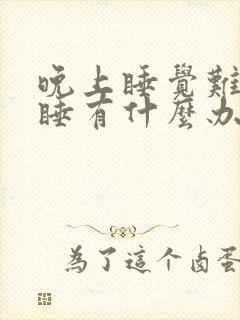 晚上睡覺難
睡有什麼办
為了這个卤蛋